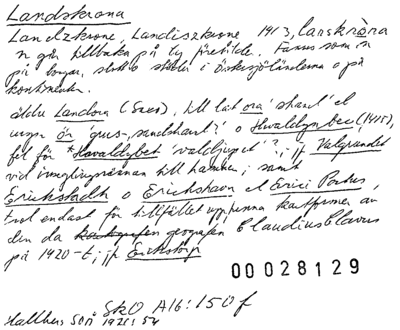 Landskrona
Landzkrone, Landiszkrone 1413, lanskròna
n går tillbaka på ty förebild. Fanns som n
på borgar, slott o städer i Östersjöländerna o på
kontinenten.
äldre Landora (Saxo), till lat ora 'strand' el
urspr ör 'grus-, sandstrand'? o Hwaldhynbec (1415),
fel för *Hawaldybet 'valdjupet'?; jfr Valgrundet
vid inseglingsrännan till hamnen; samt
Erickstadh o Erickshavn el Erici Portus,
trol endast för tillfället uppfunna kartformer av
den da geografen Claudius Clavus
på 1420-t; jfr Erikstorp
00028129
SkO A16:150f
Hallberg SOÅ 1921: 54